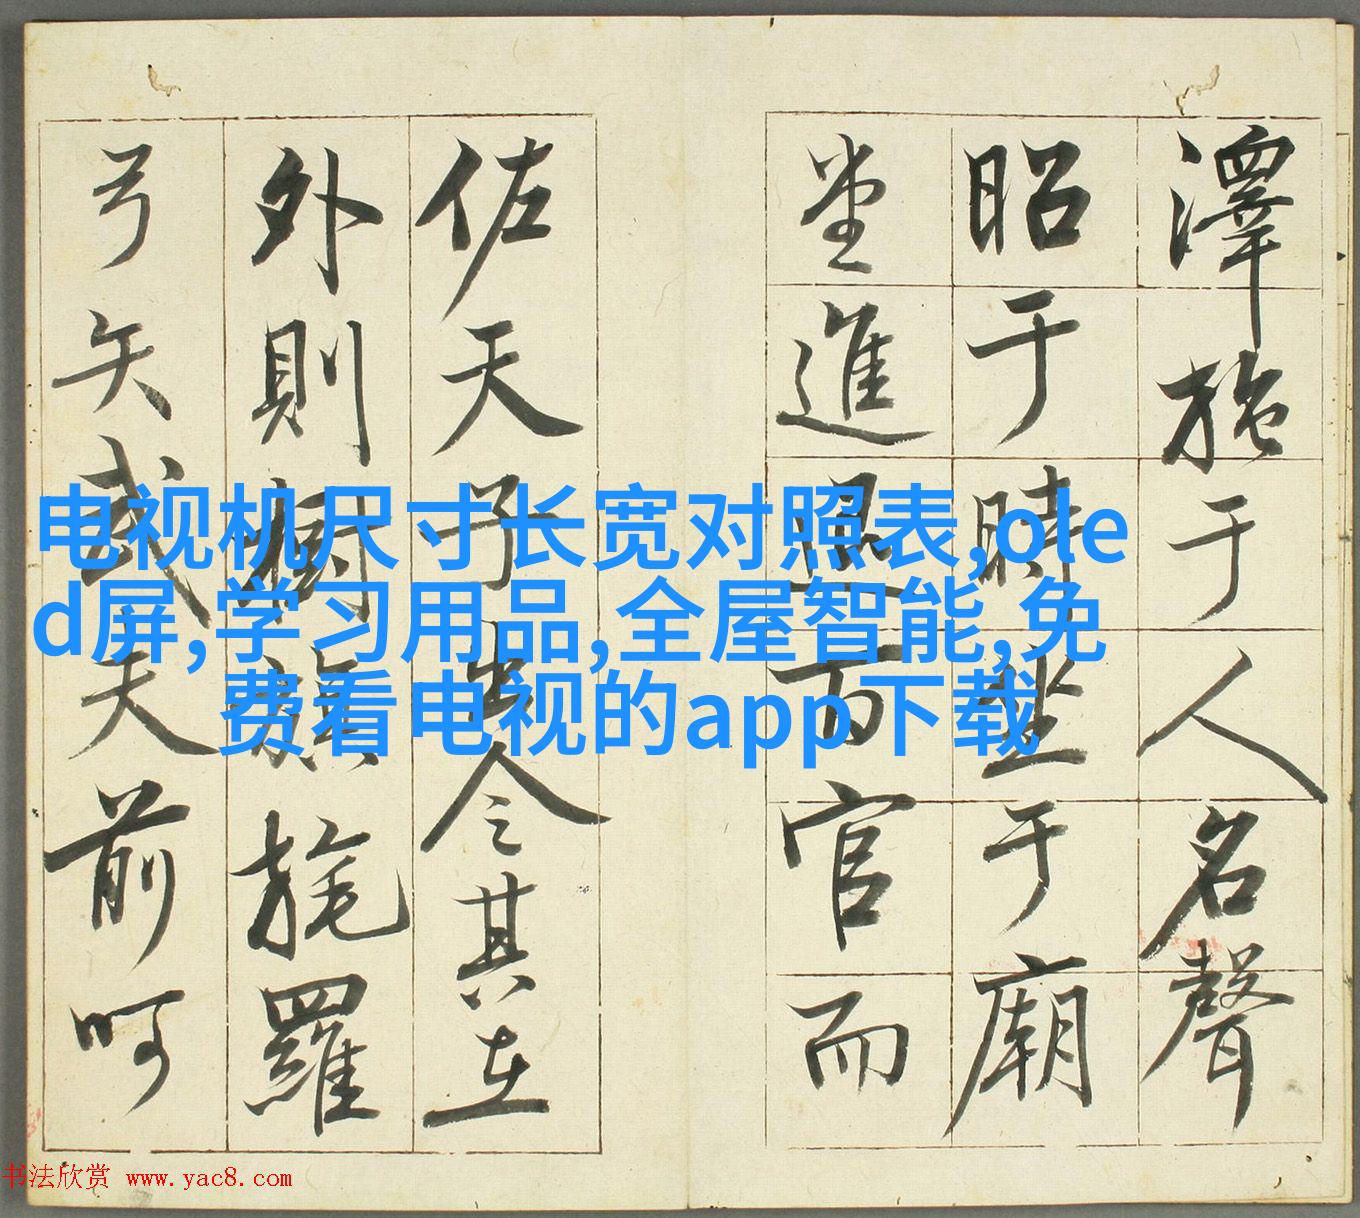 澤施于人名聲
昭于時坐于廟
堂進退百官而
佐天子出令其在
外則樹旗旄羅
弓矢武夫前呵
电视机尺寸长宽对照表,ole
d屏,学习用品,全屋智能,免
费看电视的app下载
书法欣赏 www.yac8.com